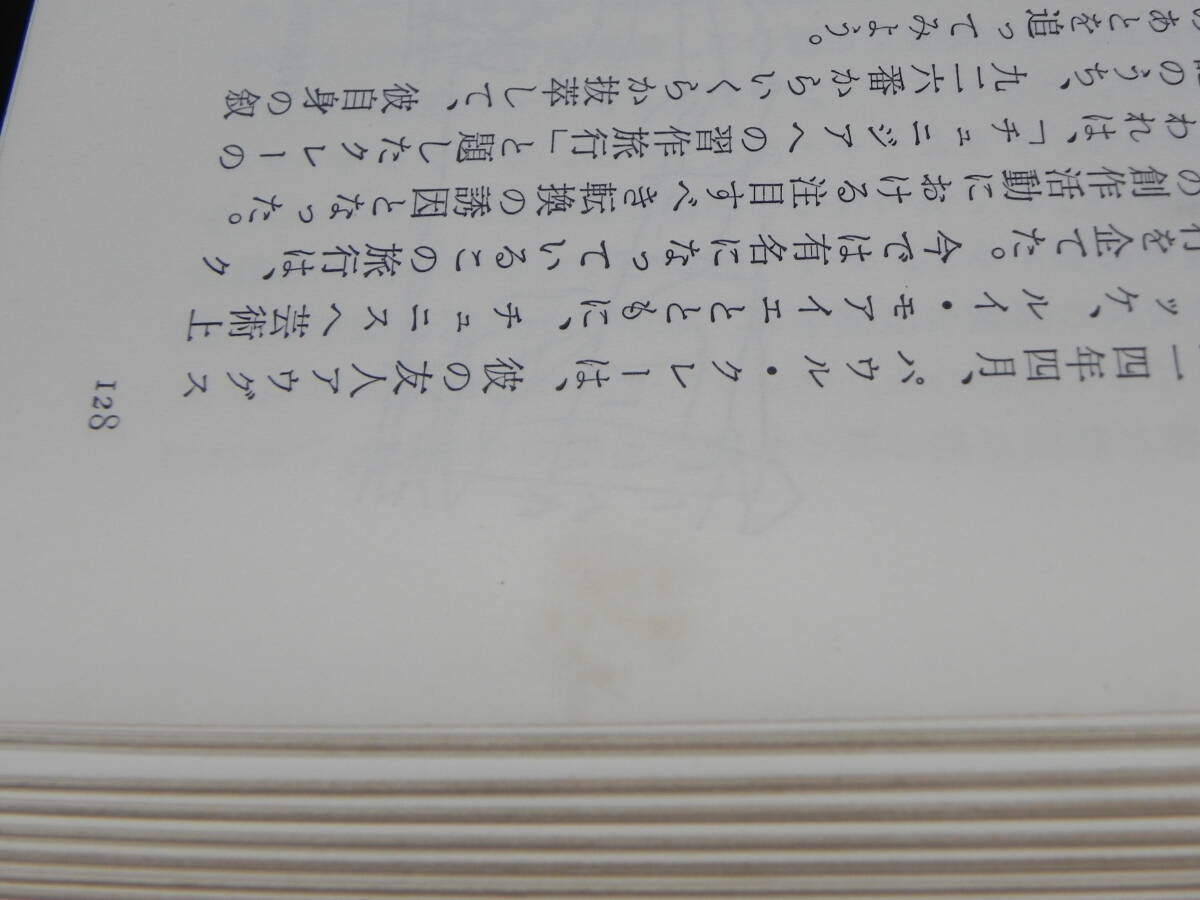 一四年四月、パウル・クレーは、彼の友人アウグス
ッケ、ルイ・モアイエとともに、チュニスへ芸術上
行を企てた。今では有名になっているこの旅行は、ク
の創作活動における注目すべき転換の誘因となった。
われは、「チュニジアへの習作旅行」と題したクレーの
のうち、九二六番からいくらか抜萃して、彼自身の叙
あとを追ってみよう。
128